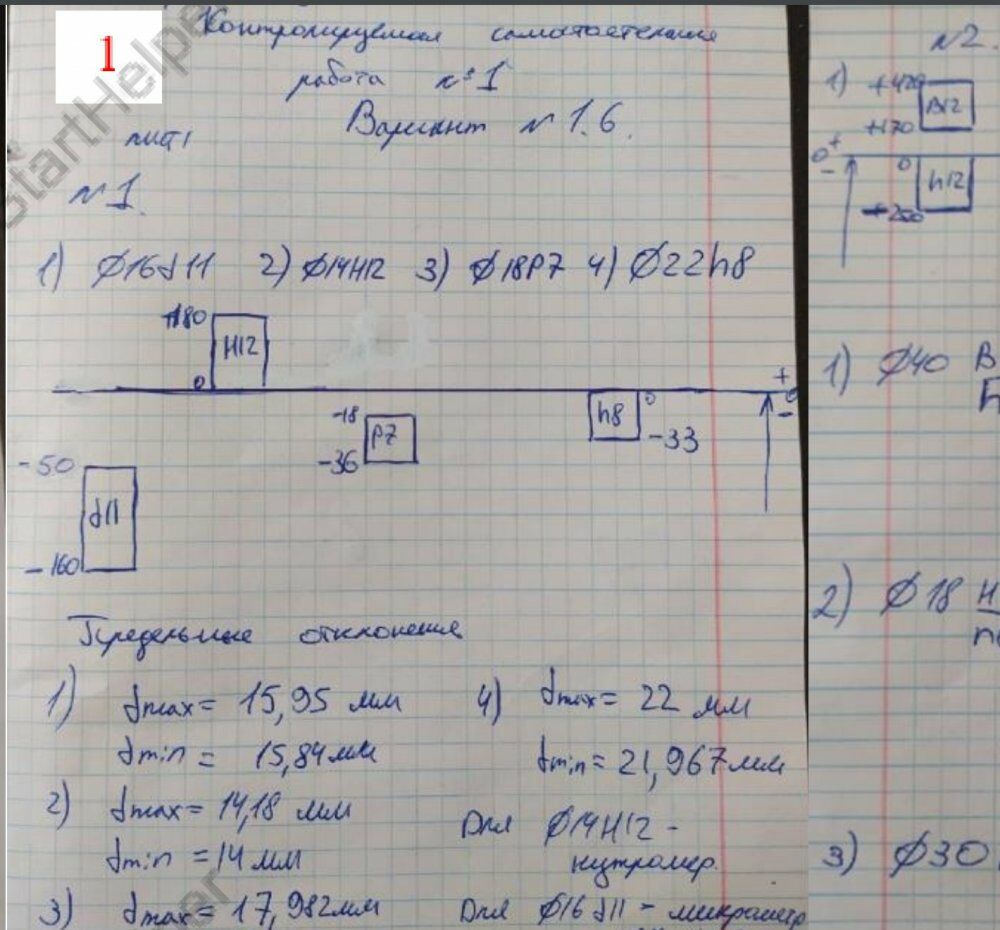 1
StartHelper
Контролируемая самостоятельная
работа №1
лист 1
Вариант №1.6.
№1.
1) Ø16d11 2) Ø14H12 3) Ø18P7 4) Ø22h8
+180
H12
0
-18
P7
-36
h8
0
-33
+
0
-
-50
d11
-160
Предельные отклонения
1) dmax = 15,95 мм
dmin = 15,84 мм
2) dmax = 14,18 мм
dmin = 14 мм
3) dmax = 17,982 мм
4) dmax = 22 мм
dmin = 21,967 мм
Для Ø14H12 -
нутромер.
Для Ø16d11 - микрометр
№2.
1) +420
B12
+170
+
0
-
0
h12
-250
1) Ø40 B
h
2) Ø18 H
n
3) Ø30